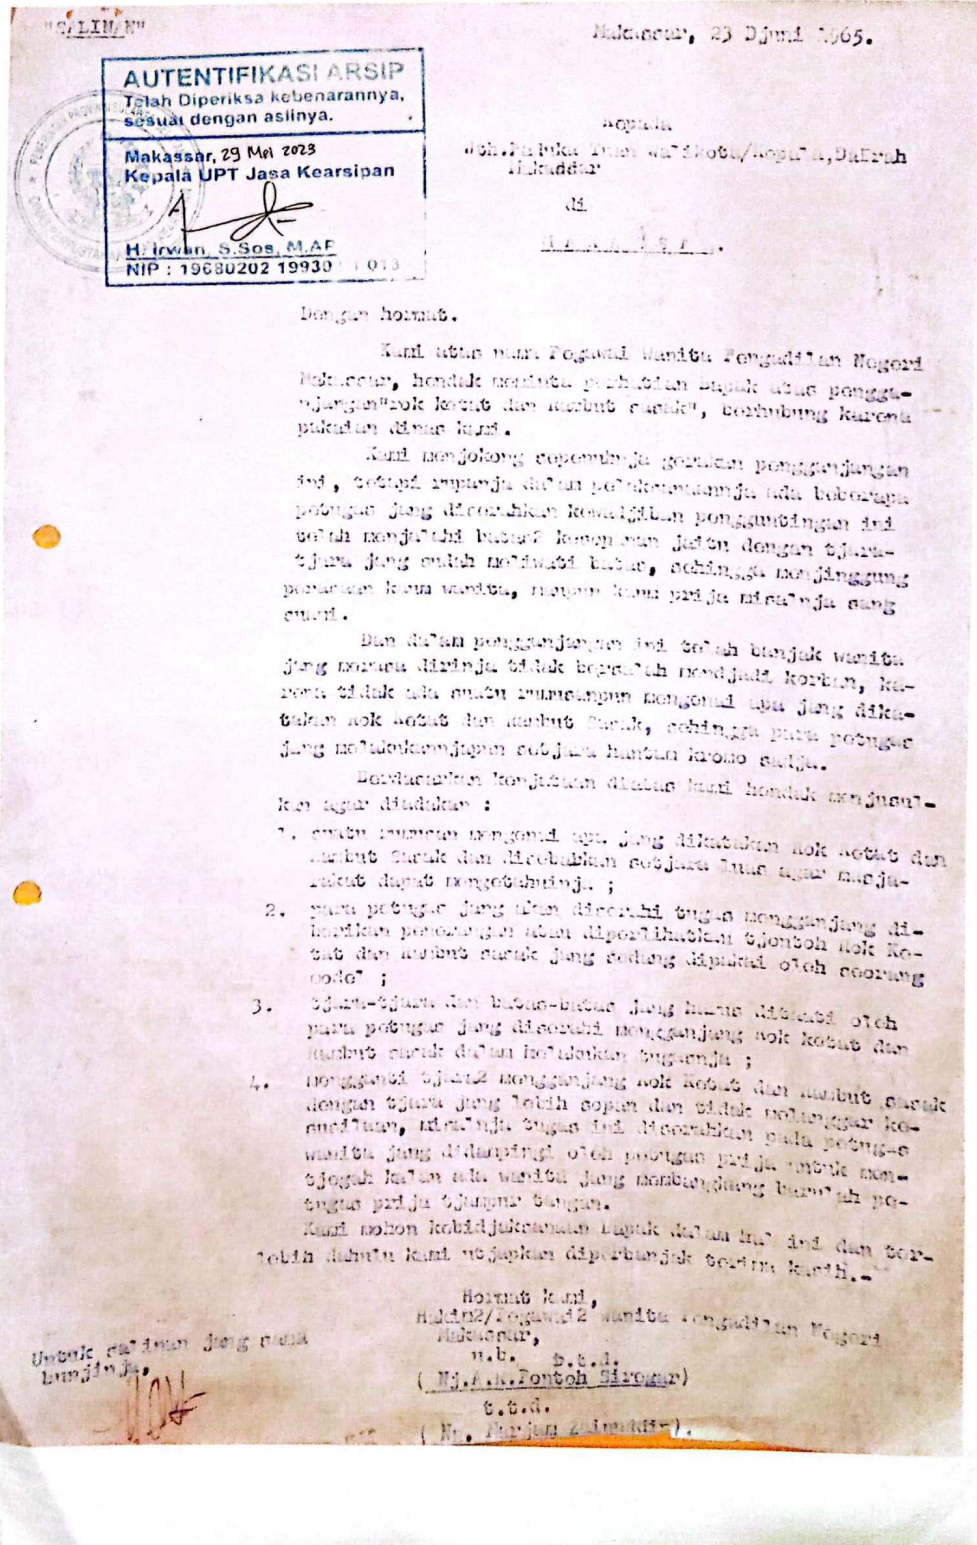 "SALINAN"
Makassar, 23 Djuni 1965.
AUTENTIFIKASI ARSIP
Telah Diperiksa kebenarannya,
sesuai dengan aslinya.
Makassar, 29 Mei 2023
Kepala UPT Jasa Kearsipan
H. Irwan, S.Sos, M.AP
NIP : 19680202 19930 1 013
Kepada
Jth.Paduka Tuan Walikota/Kepala,DaErah
Makaddar
di
M a k a s s a r.
Dengan hormat.
Kami atas nama Pegawai Wanita Pengadilan Negeri
Makassar, hendak meminta perhatian Bapak atas pengga-
njangan"rok ketat dan rambut sasak", berhubung karena
pakaian dinas kami.
Kami menjokong sepenuhnja gerakan pengganjangan
ini, tetapi rupanja dalam pelaksanaannja ada beberapa
petugas jang diserahkan kewadjiban pengguntingan ini
telah menjalahi batas2 kesopanan jaitu dengan tjara-
tjara jang sudah meliwati batas, sehingga menjinggung
perasaan kaum wanita, maupun kaum prija misalnja sang
suami.
Dan dalam pengganjangan ini telah banjak wanita
jang merasa dirinja tidak bersalah mendjadi korban, ka-
rena tidak ada suatu rumusanpun mengenai apa jang dika-
takan Rok Ketat dan Rambut Sasak, sehingga para petugas
jang melakukannjapun setjara hantam kromo sadja.
Berdasarkan kenjataan diatas kami hendak menjusul-
kan agar diadakan :
1. suatu rumusan mengenai apa jang dikatakan Rok Ketat dan
Rambut Sasak dan disebabkan setjara luas agar masja-
rakat dapat mengetahuinja ;
2. para petugas jang akan diserahi tugas mengganjang di-
berikan penerangan atau diperlihatkan tjontoh Rok Ke-
tat dan Rambut sasak jang sedang dipakai oleh seorang
model ;
3. tjara-tjara dan batas-batas jang harus ditaati oleh
para petugas jang diserahi mengganjang Rok ketat dan
Rambut sasak dalam melakukan tugasnja ;
4. Mengganti tjara2 mengganjang Rok Ketat dan Rambut sasak
dengan tjara jang lebih sopan dan tidak melanggar ke-
susilaan, misalnja tugas ini diserahkan pada petugas
wanita jang didampingi oleh petugas prija untuk men-
tjegah kalau ada wanita jang membangkang barulah pe-
tugas prija tjampur tangan.
Kami mohon kebidjaksanaan Bapak dalam hal ini dan ter-
lebih dahulu kami utjapkan diperbanjak terima kasih.-
Hormat kami,
Hakim2/Pegawai2 Wanita Pengadilan Negeri
Makassar,
u.b.
t.t.d.
( Nj.A.K.Pontoh Siregar)
t.t.d.
( Nn. Marjam Zainuddin).
Untuk salinan jang sama
bunjinja,